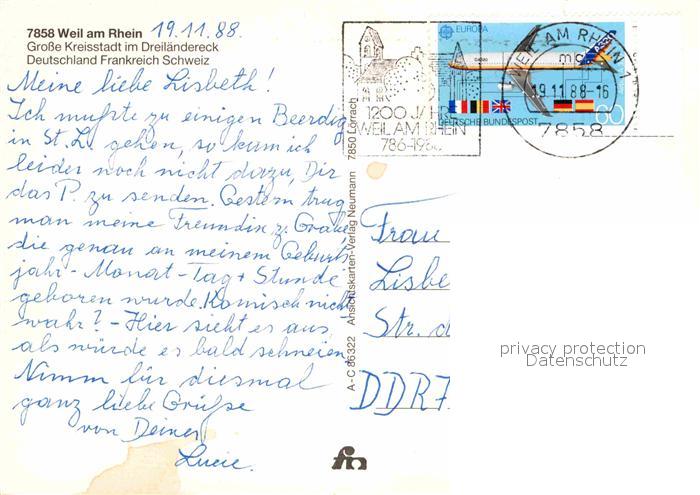 7858 Weil am Rhein 19.11.88.
Große Kreisstadt im Dreiländereck
Deutschland Frankreich Schweiz
Meine liebe Lisbeth!
Ich mußte zu einigen Beerdig.
in St. L. gehen, so kam ich
leider noch nicht dazu, Dir
das P. zu senden. Gestern trug
man meine Freundin z. Grabe
die genau an meinem Geburts
jahr - Monat - Tag + Stunde
geboren wurde. Komisch nicht
wahr? - Hier sieht es aus,
als würde es bald schneien
Nimm für diesmal
ganz liebe Grüße
von Deiner
Lucie.
A-C 86322 Ansichtskarten-Verlag Neumann 7850 Lörrach
1200 JAHRE
WEIL AM RHEIN
786-1986
EUROPA
AIRBUS
60
DEUTSCHE BUNDESPOST
WEIL AM RHEIN 1
19.11.88-16
7858
Frau
Lisbe
Str. d
DDR 7
privacy protection
Datenschutz